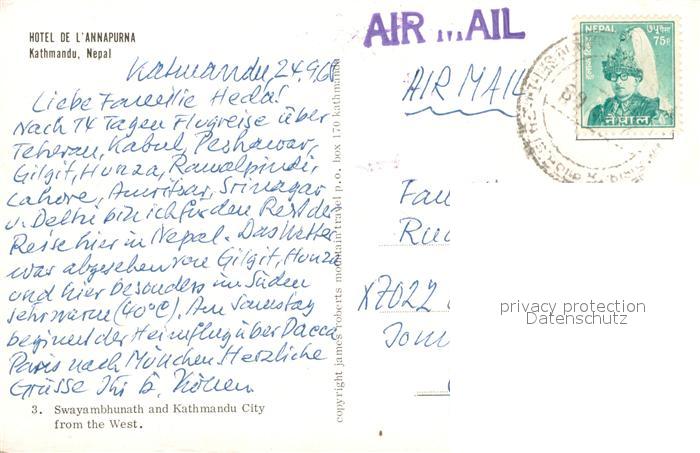 HOTEL DE L'ANNAPURNA
Kathmandu, Nepal
Kathmandu, 24.9.68
Liebe Familie Heda!
Nach 14 Tagen Flugreise über
Teheran, Kabul, Peshawar,
Gilgit, Hunza, Rawalpindi,
Lahore, Amritsar, Srinagar
u. Delhi bin ich für den Rest der
Reise hier in Nepal. Das Wetter
war abgesehen von Gilgit, Hunza
und hier besonders im Süden
sehr warm (40°C). Am Samstag
beginnt der Heimflug über Dacca
Paris nach München. Herzliche
Grüsse Ihr
3. Swayambhunath and Kathmandu City
from the West.
copyright james roberts mountain travel p.o. box 170 kathmandu
AIR MAIL
AIR MAIL
७५ पैसा
75P
नेपाल
Fam
X7022
privacy protection
Datenschutz